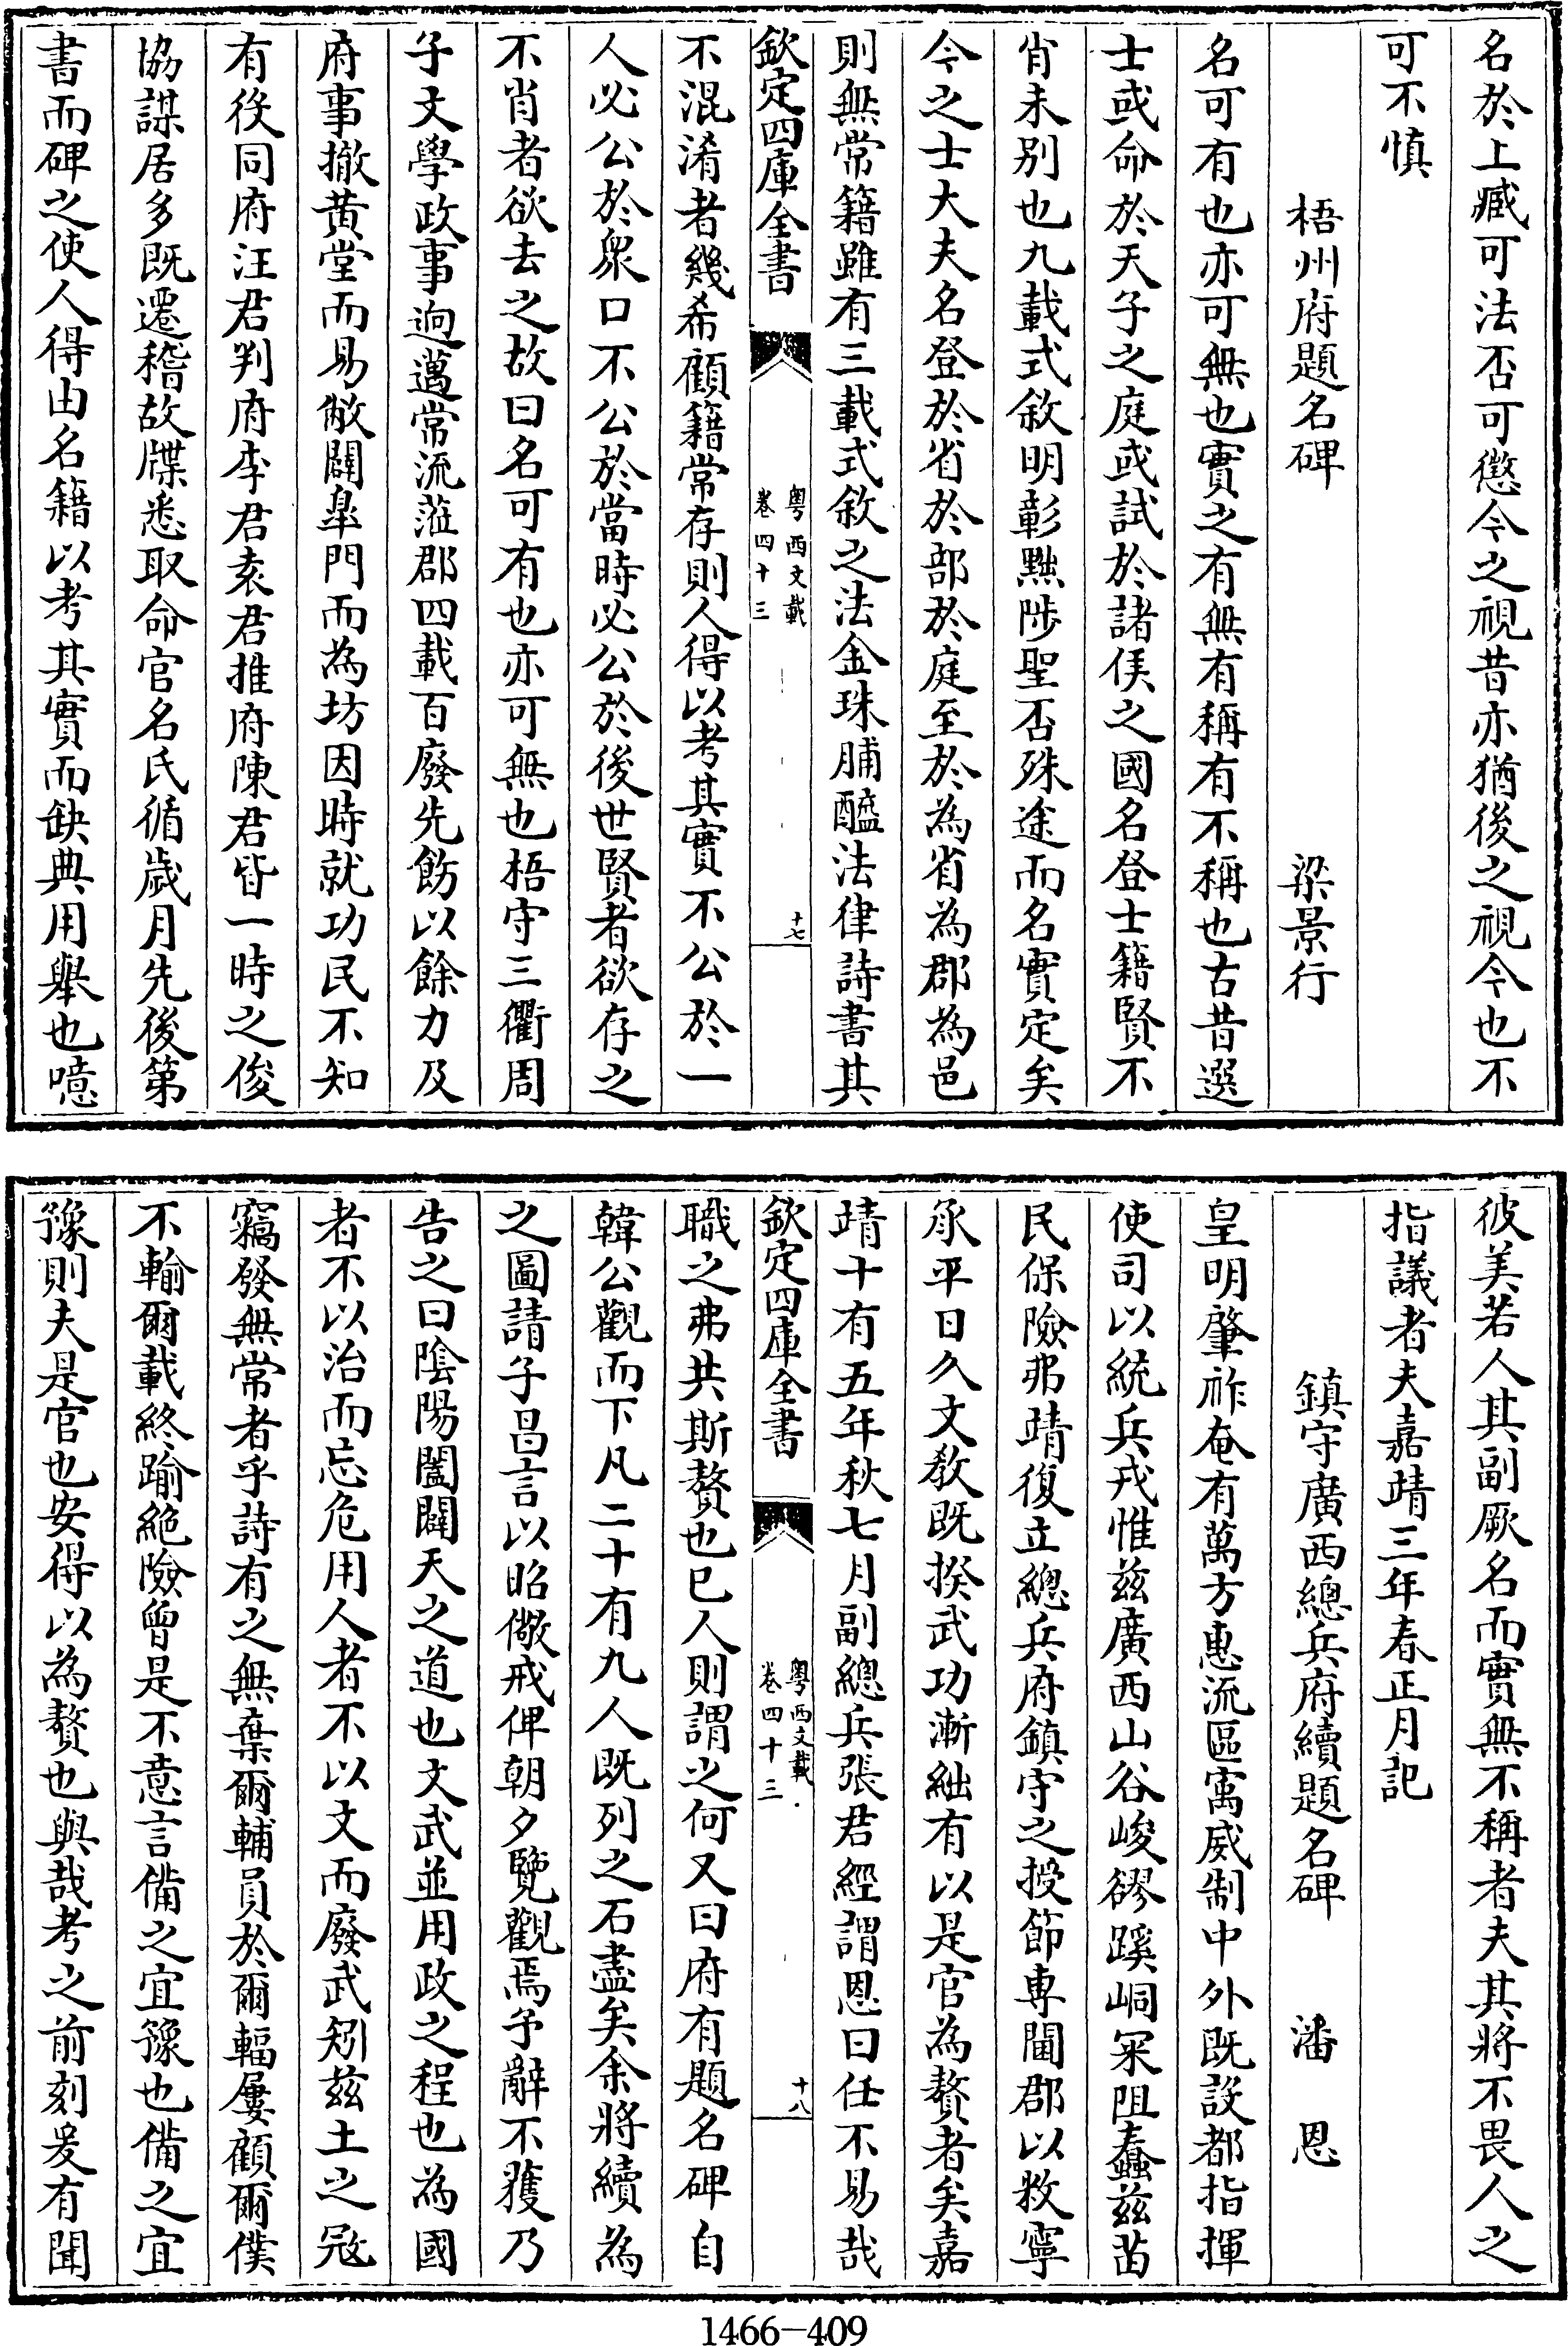 名於上臧可法否可懲今之視昔亦猶後之視今也不
可不慎
梧州府題名碑 梁景行
名可有也亦可無也實之有無有稱有不稱也古昔選
士或命於天子之庭或試於諸侯之國名登士籍賢不
肖未别也九載式敘明彰黜陟聖否殊途而名實定矣
今之士大夫名登於省於部於庭至於為省為郡為邑
則無常籍雖有三載式敘之法金珠脯醢法律詩書其
欽定四庫全書
粤西文載
卷四十三
十七
不混淆者幾希顧籍常存則人得以考其實不公於一
人必公於衆口不公於當時必公於後世賢者欲存之
不肖者欲去之故曰名可有也亦可無也梧守三衢周
子文學政事逈邁常流蒞郡四載百廢先飭以餘力及
府事撤黄堂而易敞闢臯門而為坊因時就功民不知
有役同府汪君判府李君袁君推府陳君皆一時之俊
協謀居多既遷稽故牒悉取命官名氏循歲月先後第
書而碑之使人得由名籍以考其實而缺典用舉也噫
彼美若人其副厥名而實無不稱者夫其將不畏人之
指議者夫嘉靖三年春正月記
鎮守廣西總兵府續題名碑 潘恩
皇明肇祚奄有萬方惠流區寓威制中外既設都指揮
使司以統兵戎惟兹廣西山谷峻嵺蹊峒罙阻蠢兹苗
民保險弗靖復立總兵府鎮守之授節専閫郡以敉寧
承平日久文敎既揆武功漸絀有以是官為贅者矣嘉
靖十有五年秋七月副總兵張君經謂恩曰任不易哉
欽定四庫全書
粤西文載
卷四十三
十八
職之弗共斯贅也已人則謂之何又曰府有題名碑自
韓公觀而下凡二十有九人既列之石盡矣余將續為
之圖請子昌言以昭儆戒俾朝夕覽觀焉予辭不獲乃
告之曰隂陽闔闢天之道也文武並用政之程也為國
者不以治而忘危用人者不以文而廢武矧兹土之宼
竊發無常者乎詩有之無棄爾輔員於爾輻屢顧爾僕
不輸爾載終踰絶險曾是不意言備之宜豫也備之宜
豫則夫是官也安得以為贅也與哉考之前刻爰有聞
1466-409